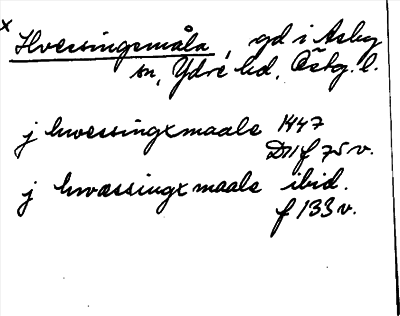 x Hvessingsmåla, gd i Asby
sn, Ydre hd, Östg. l.
j hwessingxmaale 1447
D11 f 75 v.
j hwæssingxmaale ibid.
f 133 v.